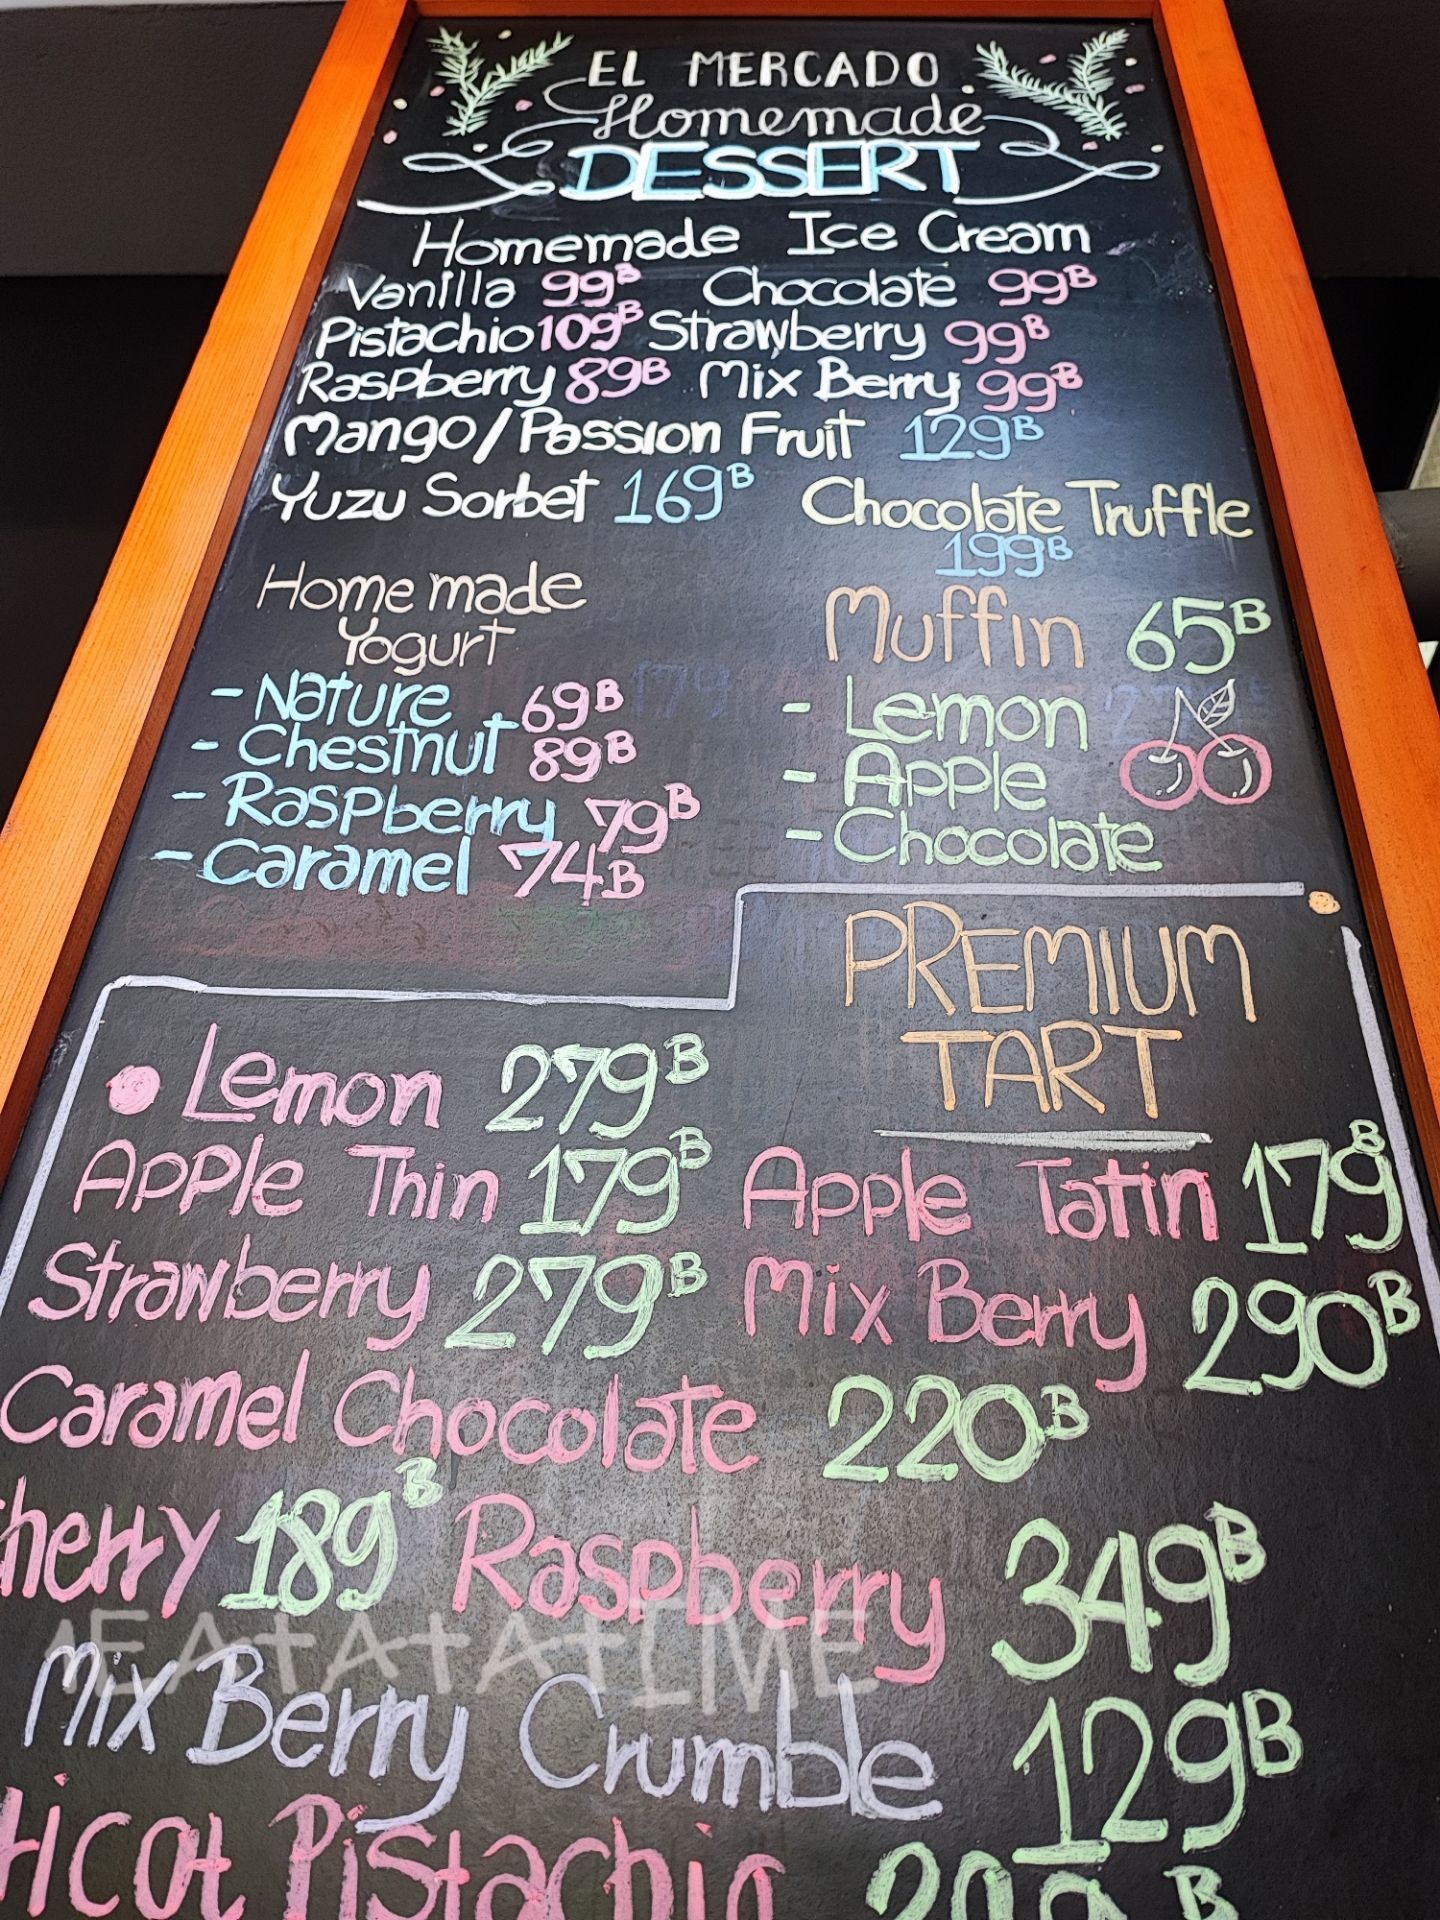 EL MERCADO
Homemade
DESSERT
Homemade Ice Cream
Vanilla 99B Chocolate 99B
Pistachio 109B Strawberry 99B
Raspberry 89B Mix Berry 99B
Mango/Passion Fruit 129B
Yuzu Sorbet 169B Chocolate Truffle
199B
Home made
Yogurt
- Nature 69B
- Chestnut 89B
- Raspberry 79B
- Caramel 74B
Muffin 65B
- Lemon
- Apple
- Chocolate
PREMIUM
TART
Lemon 279B
Apple Thin 179B Apple Tatin 179B
Strawberry 279B Mix Berry 290B
Caramel Chocolate 220B
herry 189B Raspberry 349B
EATATATIME
Mix Berry Crumble 129B
ricot Pistachio